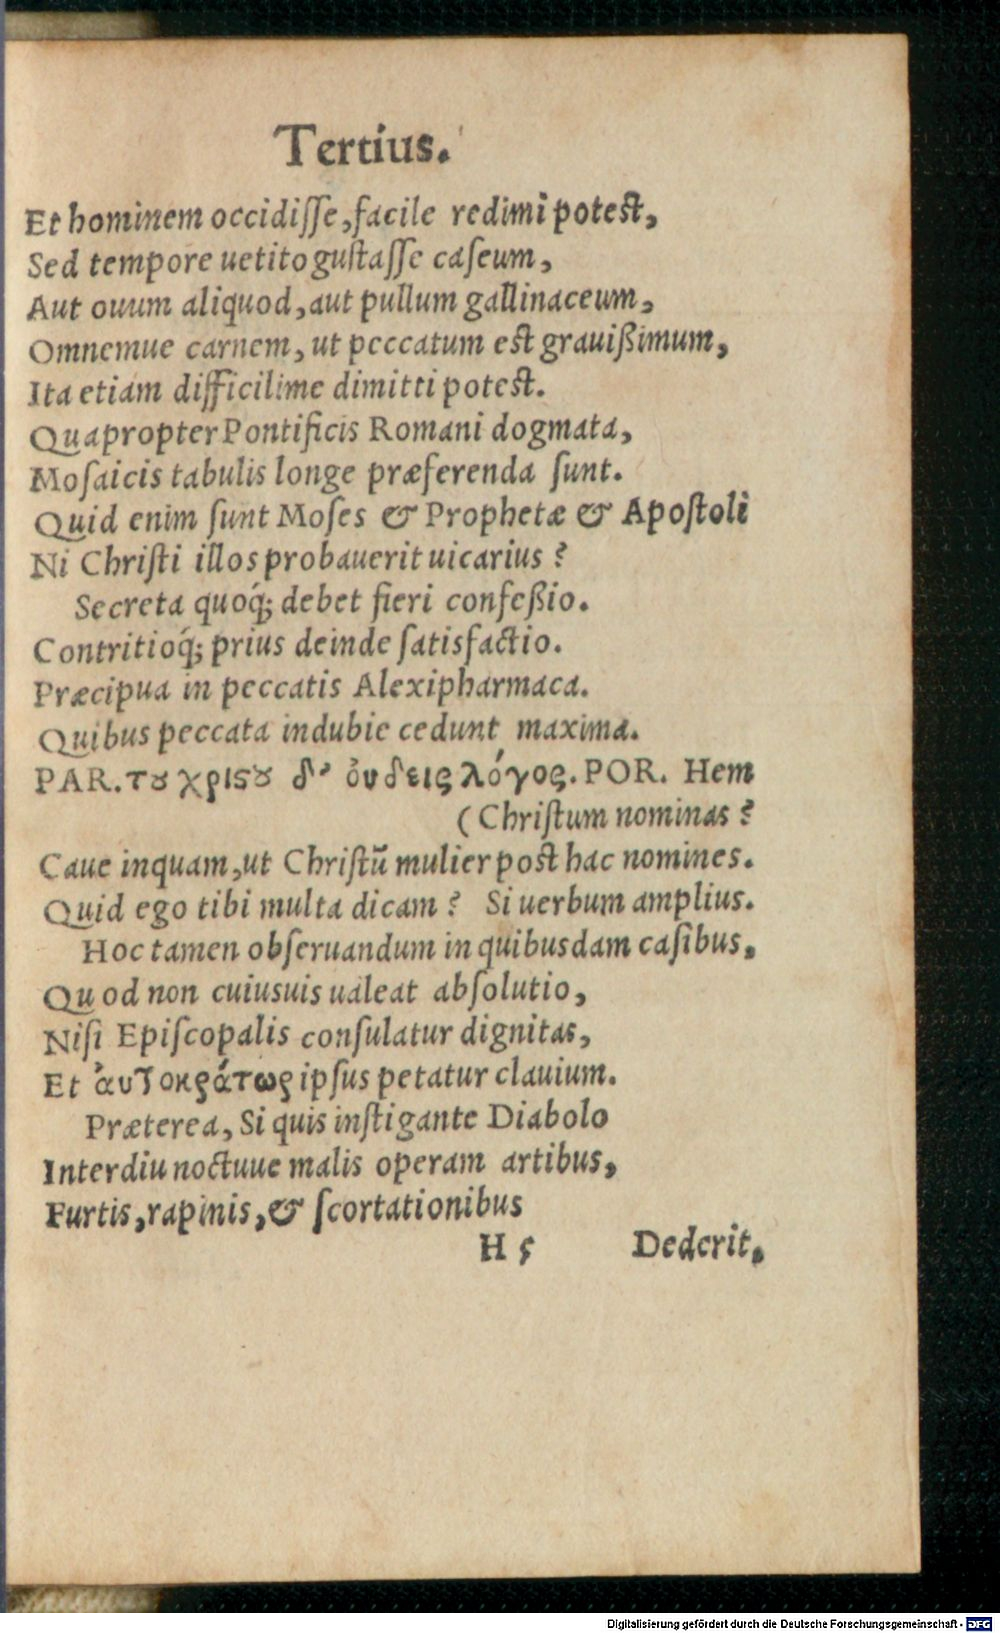 Tertius.
Et hominem occidiſſe, facile redimi poteſt,
Sed tempore uetito guſtaſſe caſeum,
Aut ouum aliquod, aut pullum gallinaceum,
Omnemue carnem, ut peccatum eſt grauißimum,
Ita etiam difficilime dimitti poteſt.
Quapropter Pontificis Romani dogmata,
Moſaicis tabulis longe præferenda ſunt.
Quid enim ſunt Moſes & Prophetæ & Apoſtoli
Ni Chriſti illos probauerit uicarius?
Secreta quoq́; debet fieri confeßio.
Contritioq́; prius deinde ſatisfactio.
Præcipua in peccatis Alexipharmaca.
Quibus peccata indubie cedunt maxima.
PAR. τȣ χριϛȣ δ' ὀυδεις λόγος. POR. Hem
(Chriſtum nominas?
Caue inquam, ut Chriſtū mulier poſt hac nomines.
Quid ego tibi multa dicam? Si uerbum amplius.
Hoc tamen obſeruandum in quibusdam caſibus,
Quod non cuiusuis ualeat abſolutio,
Niſi Epiſcopalis conſulatur dignitas,
Et ἀυτοκράτωρ ipſus petatur clauium.
Præterea, Si quis inſtigante Diabolo
Interdiu noctuue malis operam artibus,
Furtis, rapinis, & ſcortationibus
H 5 Dederit,
Digitalisierung gefördert durch die Deutsche Forschungsgemeinschaft - DFG